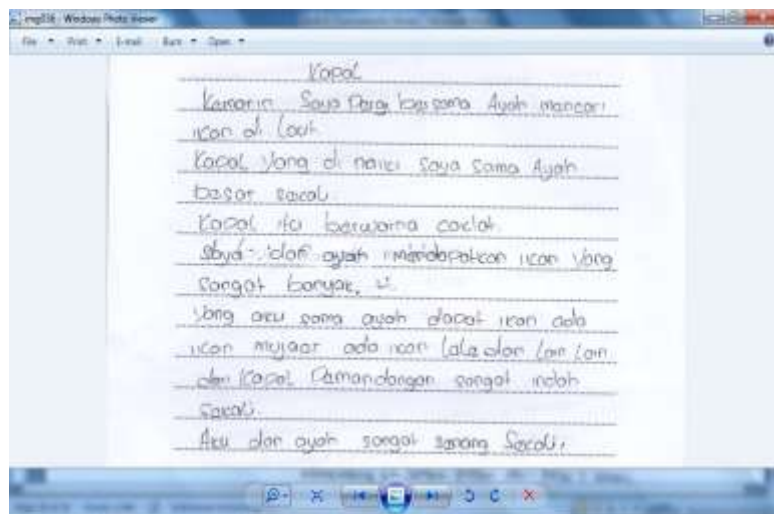 img036 - Windows Photo Viewer
File Print E-mail Burn Open
Kapal
Kemarin Saya Pergi bersama Ayah mencari
ikan di Laut
Kapal Yang di naiki Saya Sama Ayah
besar sekali
Kapal itu berwarna coklat
saya dan ayah mendapatkan ikan Yang
Sangat banyak.
Yang aku sama ayah dapat ikan ada
ikan mujaer ada ikan lele dan Lain Lain
dan Kapal Pemandangan sangat indah
Sekali.
Aku dan ayah sangat senang Sekali.